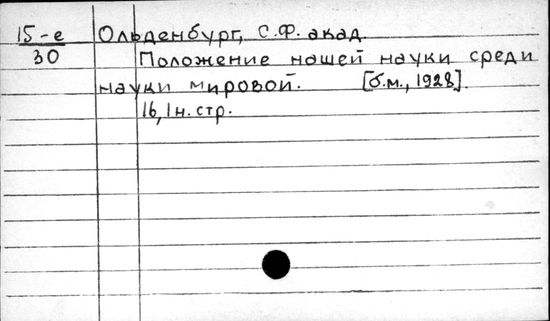 15-е Ольденбург, С.Ф. акад.
30 Положение нашей науки среди
науки мировой. [б.м., 1928].
16, 1 н. стр.